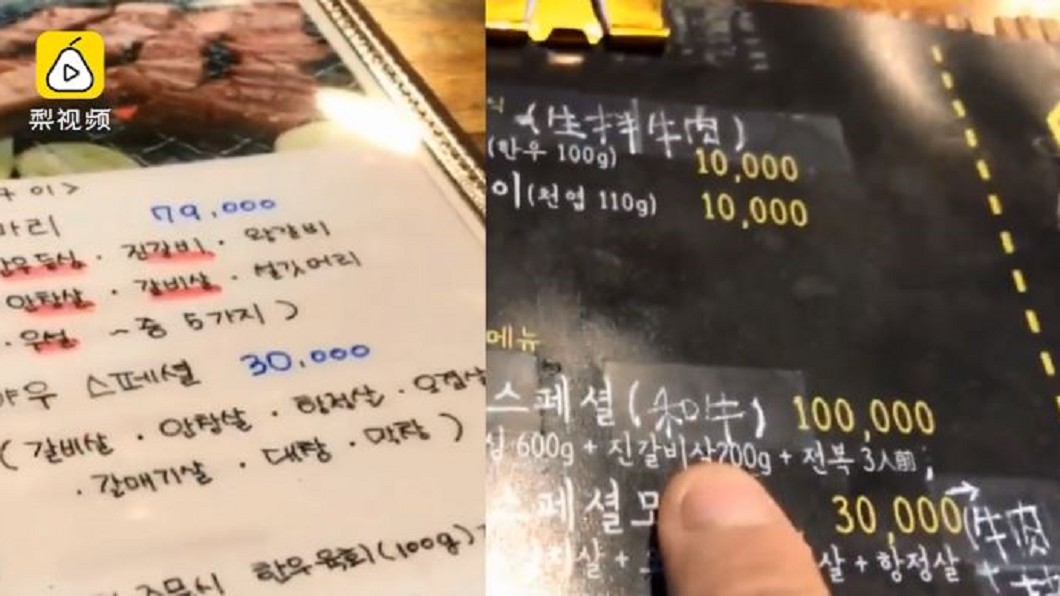 梨视频
구이>
마리 79,000
한우등심 · 진갈비 · 왕갈비
안창살 · 갈비살 · 설깃머리
· 우설 ~ 중 5가지 )
야우 스페셜 30,000
( 갈비살 · 안창살 · 항정살 · 오겹살
· 갈매기살 · 대창 · 막창 )
주문시 한우육회(100g)
식 (生拌牛肉)
(한우 100g) 10,000
이 (천엽 110g) 10,000
메뉴
스페셜 (和牛) 100,000
심 600g + 진갈비살200g + 전복 3人前;
스페셜 모 30,000 → (牛肉
살 + 살 + 항정살 +